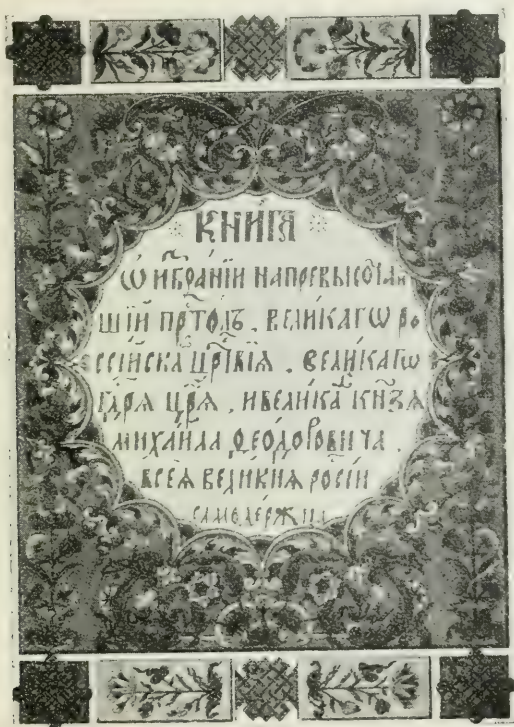 КНИГА
Ѡ ИЗБРАНІИ НАПРЕВЫСОЧАЙ
ШІЙ ПРⷭ҇ТОЛЪ, ВЕЛИКАГѠ РО
ССІЙСКА ЦРⷭ҇ТВІЯ, ВЕЛИКАГѠ
ГДⷭ҇РЯ ЦРЯ҃, ИВЕЛИКА КНЗ҃Я
МИХАИЛА ѲЕОДОРОВИЧА,
ВСЕѦ ВЕЛИКИѦ РОСІИ
САМОДЕРЖЦА